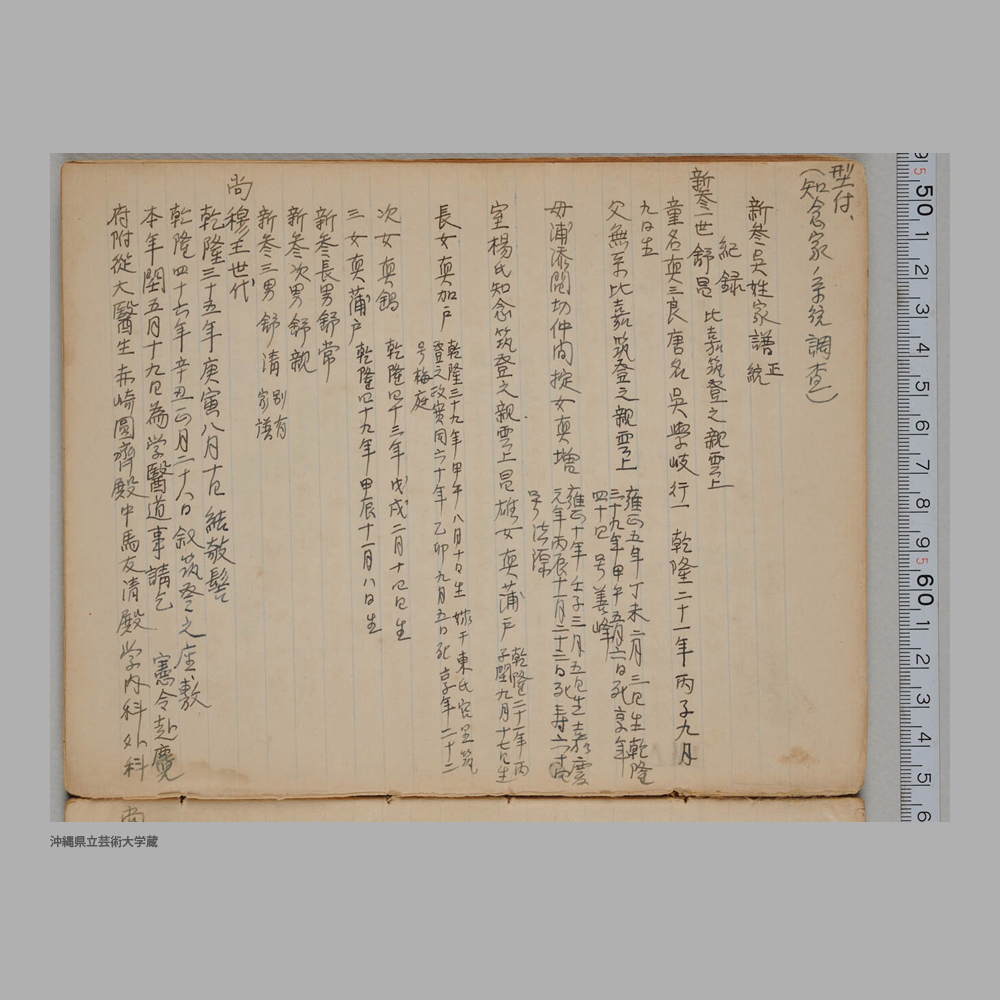 型付、
(知念家ノ系統調査)
新参呉姓家譜正統
紀録
新参一世舒昌 比嘉筑登之親雲上
童名真三良唐名呉學岐行一 乾隆二十一年丙子九月
九日生
父無系比嘉筑登之親雲上 雍正五年丁未二月三日生乾隆
三十九年甲午五月六日死享年
四十八 号善峰
母浦添間切仲間掟女真増 雍正十年壬子三月五日生嘉慶
元年丙辰十一月二十二日死寿六十五
号法源
室楊氏知念筑登之親雲上昆雄女真蒲戸 乾隆二十一年丙
子閏九月十七日生
長女真加戸 乾隆三十九年甲午八月十日生 嫁于東氏宮里筑
登之政實同六十年乙卯九月五日死享年二十二
号梅庭
次女真鶴 乾隆四十三年戊戌二月十四日生
三女真蒲戸 乾隆四十九年甲辰十一月八日生
新参長男舒常
新参次男舒親
新参三男舒清 別有
家譜
尚穆王世代
乾隆三十五年庚寅八月十日結敬髻
乾隆四十六年辛丑正月二十八日叙筑登之座敷
本年閏五月十九日為学醫道事請乞 憲令赴麑
府附從大醫生赤崎圓齊殿中馬友清殿学内科外科
尚
9 5 50 1 2 3 4 5 6 7 8 9 5 60 1 2 3 4 5 6
沖縄県立芸術大学蔵